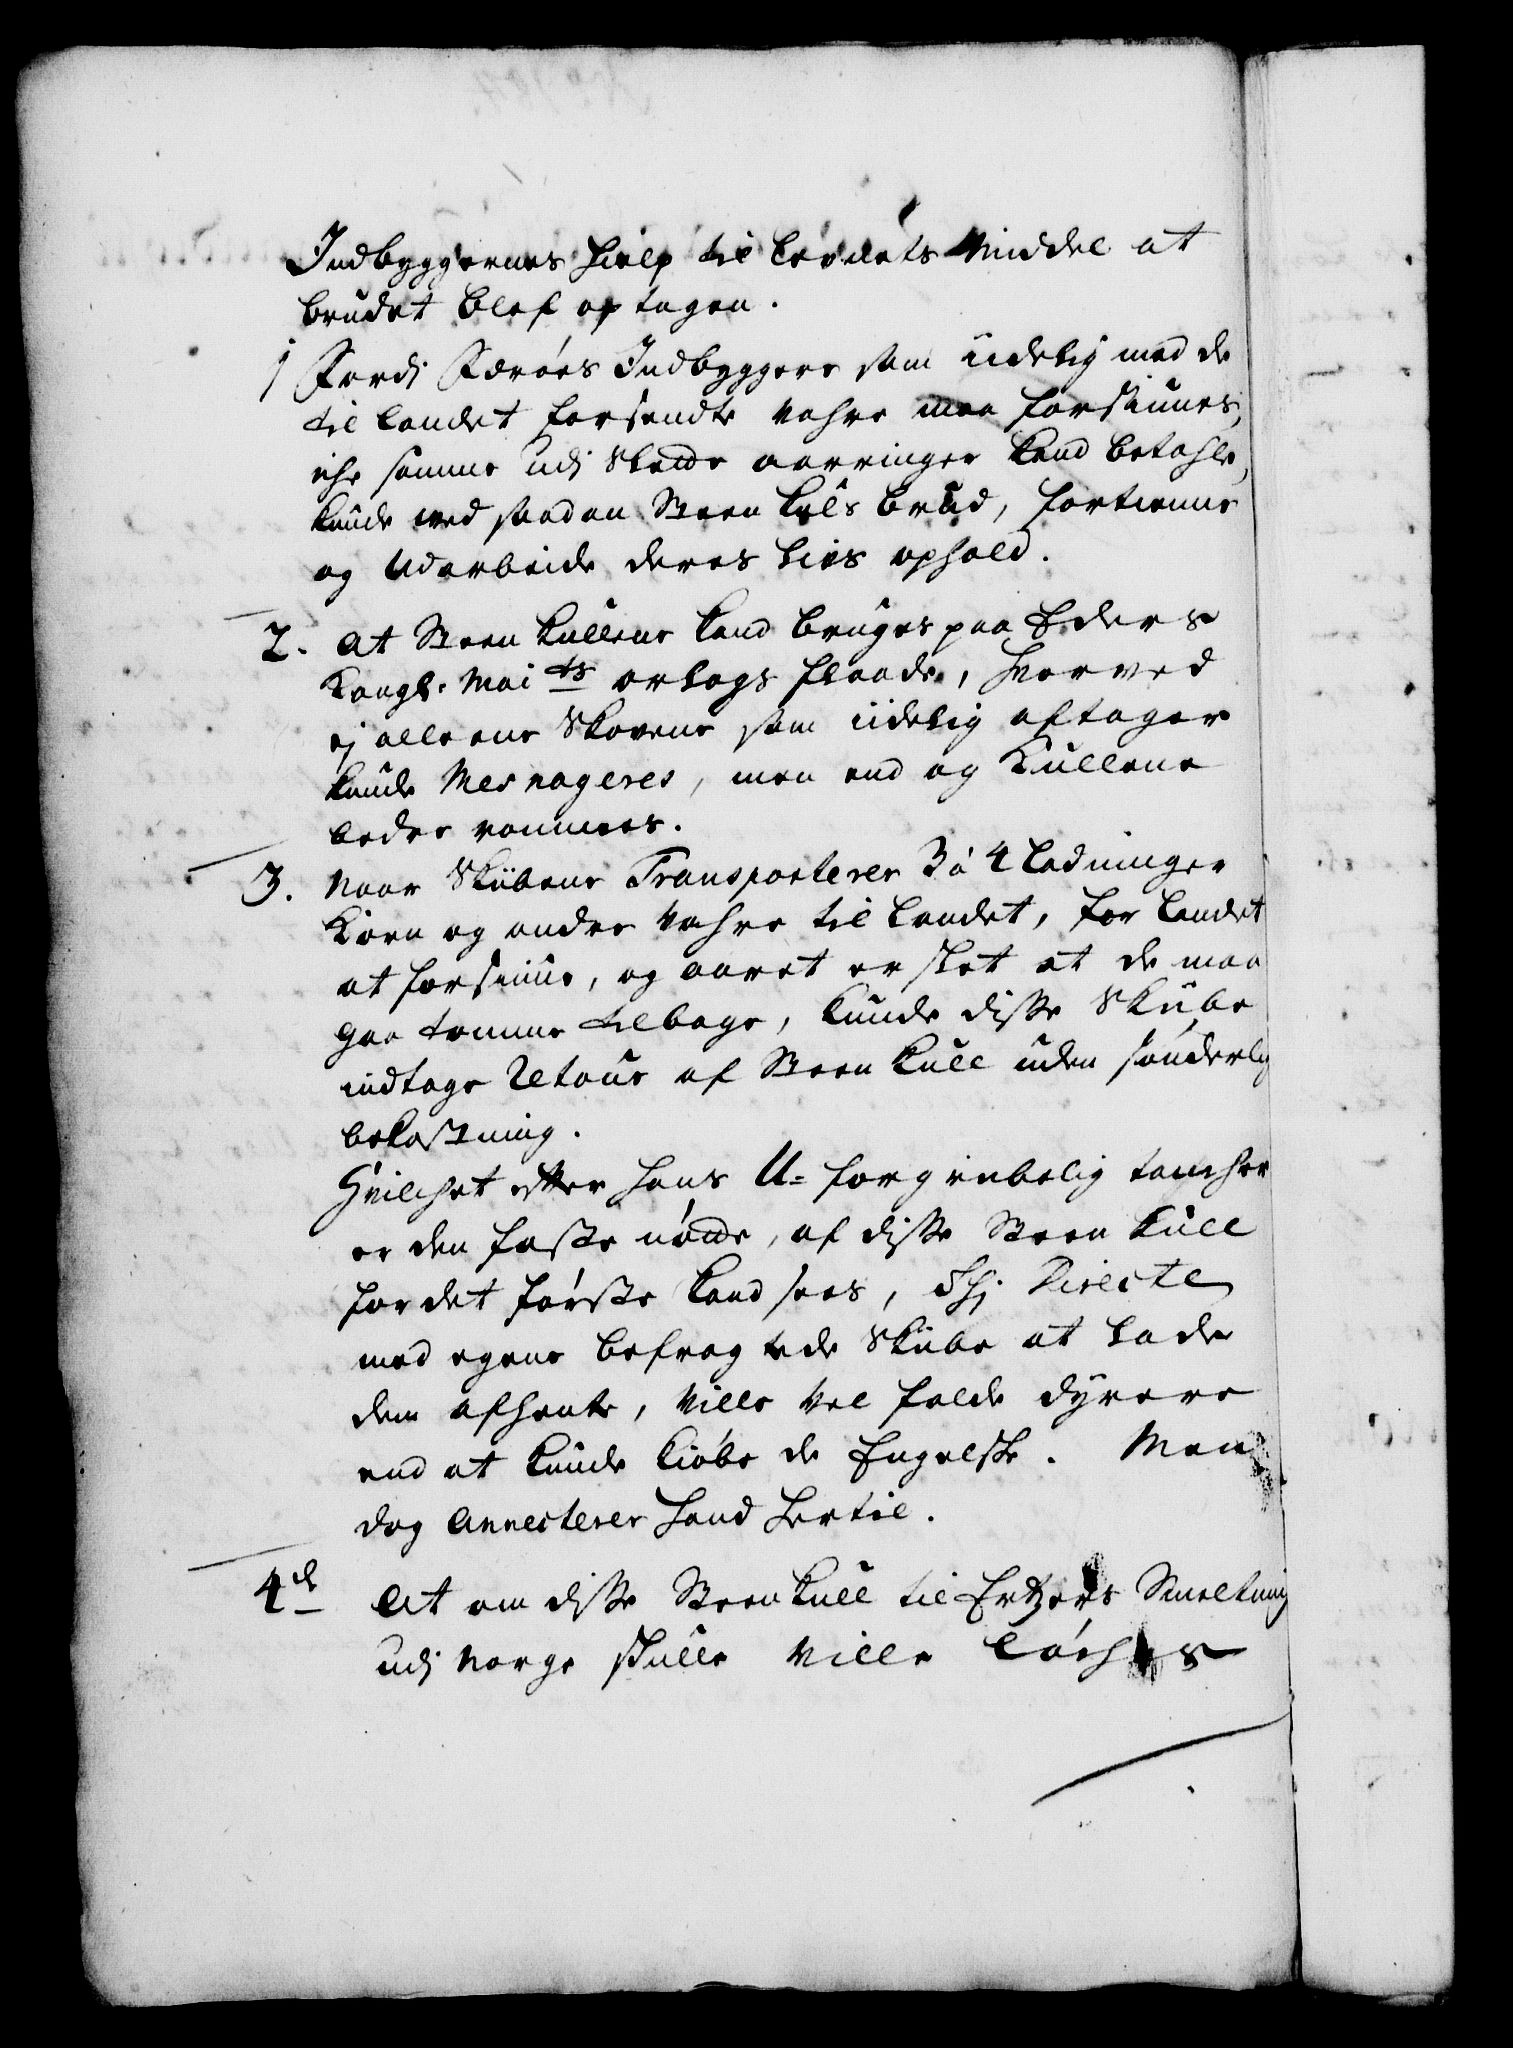 Indbyggernes hielp til levdets Middel at
brudet blef optagen.
1 Fordi Færøes Indbyggere som iidelig med de
til landet forsendte Vahre maa forsiunes,
ichе samme udi slette aaringer kand betahle,
kunde ved saadan Steen kuls brud, fortienne
og Udarbeide deres lives ophold.
2. At Steen kullene kand bruges paa Eders
Kongl. Mai ts orlogs flaade, hvorved
ej alleene Skovene som iidelig aftager
kunde Menageres, men end og Kullene
bedre rommes.
3. Naar Skibene Transporterer 3 à 4 ladninger
Korn og andre Vahre til landet, for landet
at forsiune, og aaret er slet at de maa
gaa tomme tilbage, kunde disse Skibe
indtage Retour af Steen kull uden sønderlig
bekostning.
Hvilchet efter hans U- forgribelig tancher
er den faste nøtte, af disse Steen kull
for det første kand sees, Thi Directe
med egene befragtede Skibe at lade
dem afhente, Ville vel falde dyrere
end at kunde kiøbe de Engelske. Men
dog Annecterer hand hertil.
4de At om disse Steen kull til Ertzers Smeltning
udi Norge skulle ville løches